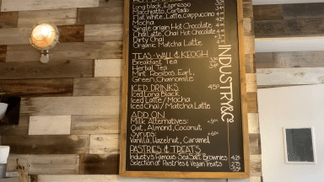 Long Black, Espresso
Macchiato, Cortado
Flat White, Latte, Cappuccino
Mocha
Single Origin Hot Chocolate
Matcha Latte, Chai, Hot Chocolate
Dirty Chai
Organic Matcha Latte
TEAS: WALL & KEOGH
Breakfast Tea
Herbal Tea
Mint, Rooibos, Earl,
Green, Chamomile
ICED DRINKS
Iced Long Black
Iced Latte / Mocha
Iced Chai / Matcha Latte
ADD ON
Milk Alternatives:
Oat, Almond, Coconut
Syrups:
Vanilla, Hazelnut, Caramel
PASTRIES & TREATS
Industry's Famous Sea Salt Brownies
Selection of Pastries & Vegan Treats
INDUSTRY&CO